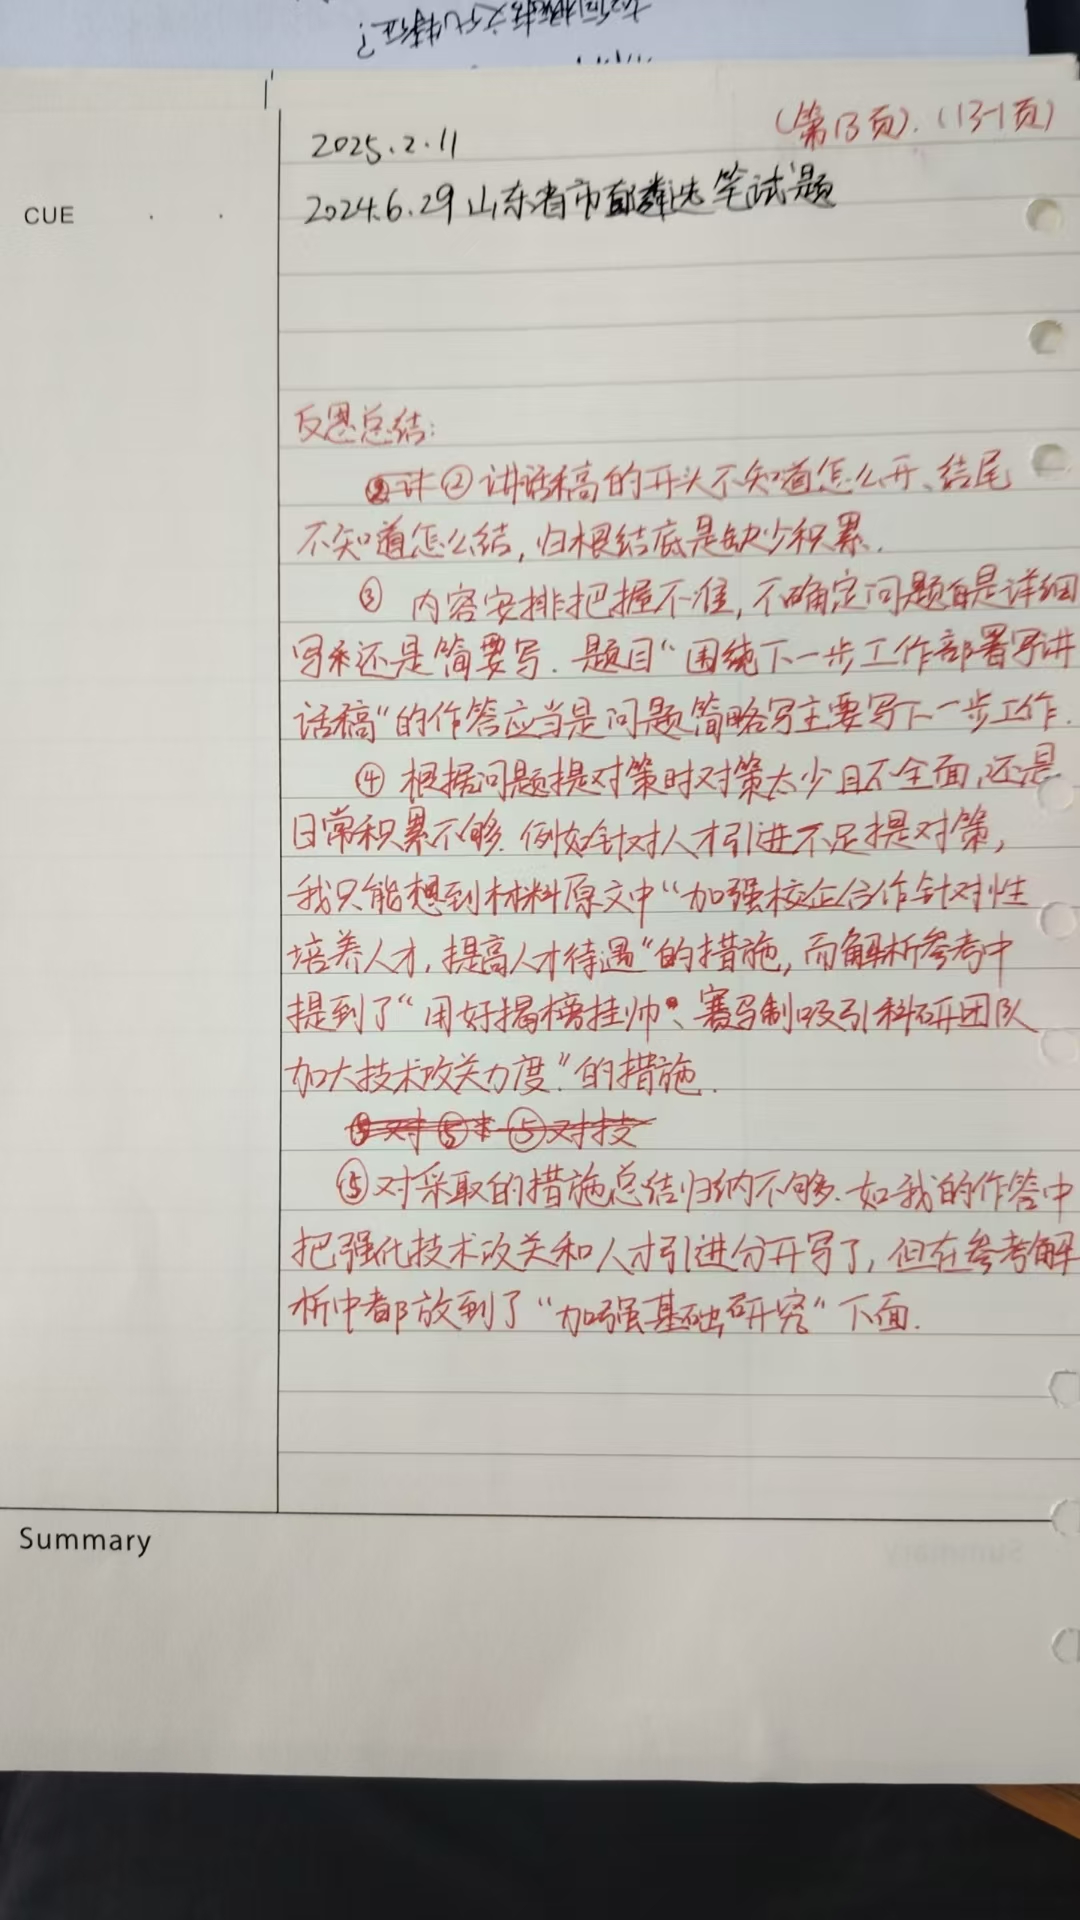 如何概括文化特征?
(第13页).(13-1页)
2025.2.11
CUE
2024.6.29山东省市直遴选笔试题
反思总结:
②讲话稿的开头不知道怎么开、结尾
不知道怎么结,归根结底是缺少积累.
③ 内容安排把握不准,不确定问题是详细
写还是简要写.题目“围绕下一步工作部署写讲
话稿”的作答应当是问题简略写主要写下一步工作.
④ 根据问题提对策时对策太少且不全面,还是
日常积累不够.例如针对人才引进不足提对策,
我只能想到材料原文中“加强校企合作针对性
培养人才,提高人才待遇”的措施,而解析参考中
提到了“用好揭榜挂帅、赛马制吸引科研团队
加大技术攻关力度”的措施.
⑤对采取的措施总结归纳不够.如我的作答中
把强化技术攻关和人才引进分开写了,但在参考解
析中都放到了“加强基础研究”下面.
Summary